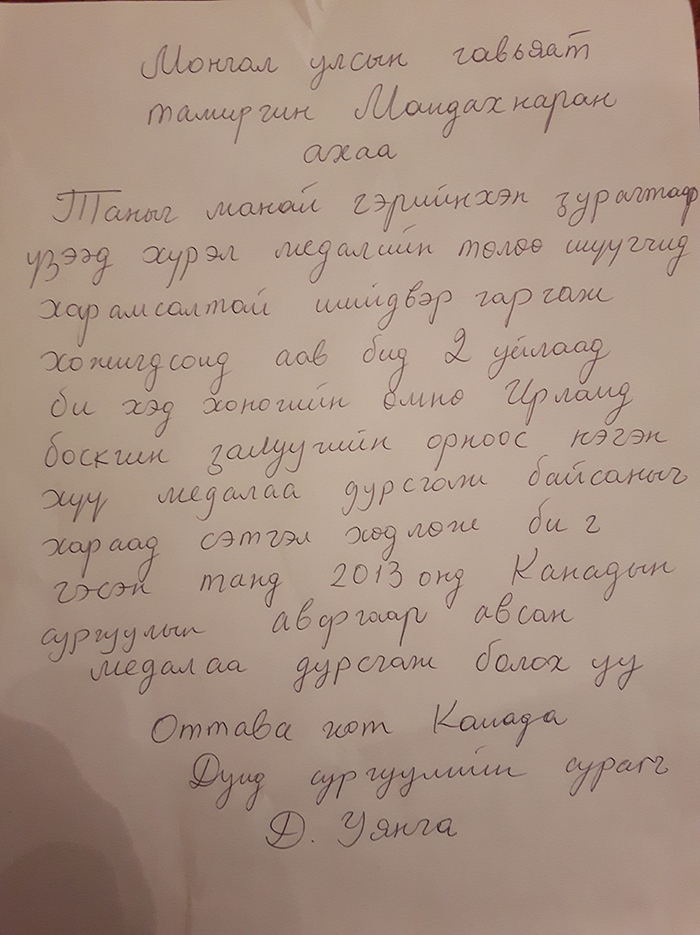 Монгал улсын гавьяат
тамиргин Мандахнаран
ахаа
Таныг манай гэрийнхэн зурагтаар
үзээд хүрэл медалийн төлөө шүүгчид
харамсалтай шийдвэр гаргаж
хожигдсонд аав бид 2 уйлаад
би хэд хоногийн өмнө Ирланд
боскгин залуугийн орноос нэгэн
хүү медалаа дурсгаж байсаныг
хараад сэтгэл ходлож би ч
гэсэн танд 2013 онд Канадын
сургуулын аваргаар авсан
медалаа дурсгаж болох уу
Оттава хот Канада
Дунд сургуулийн сурагч
Д. Уянга